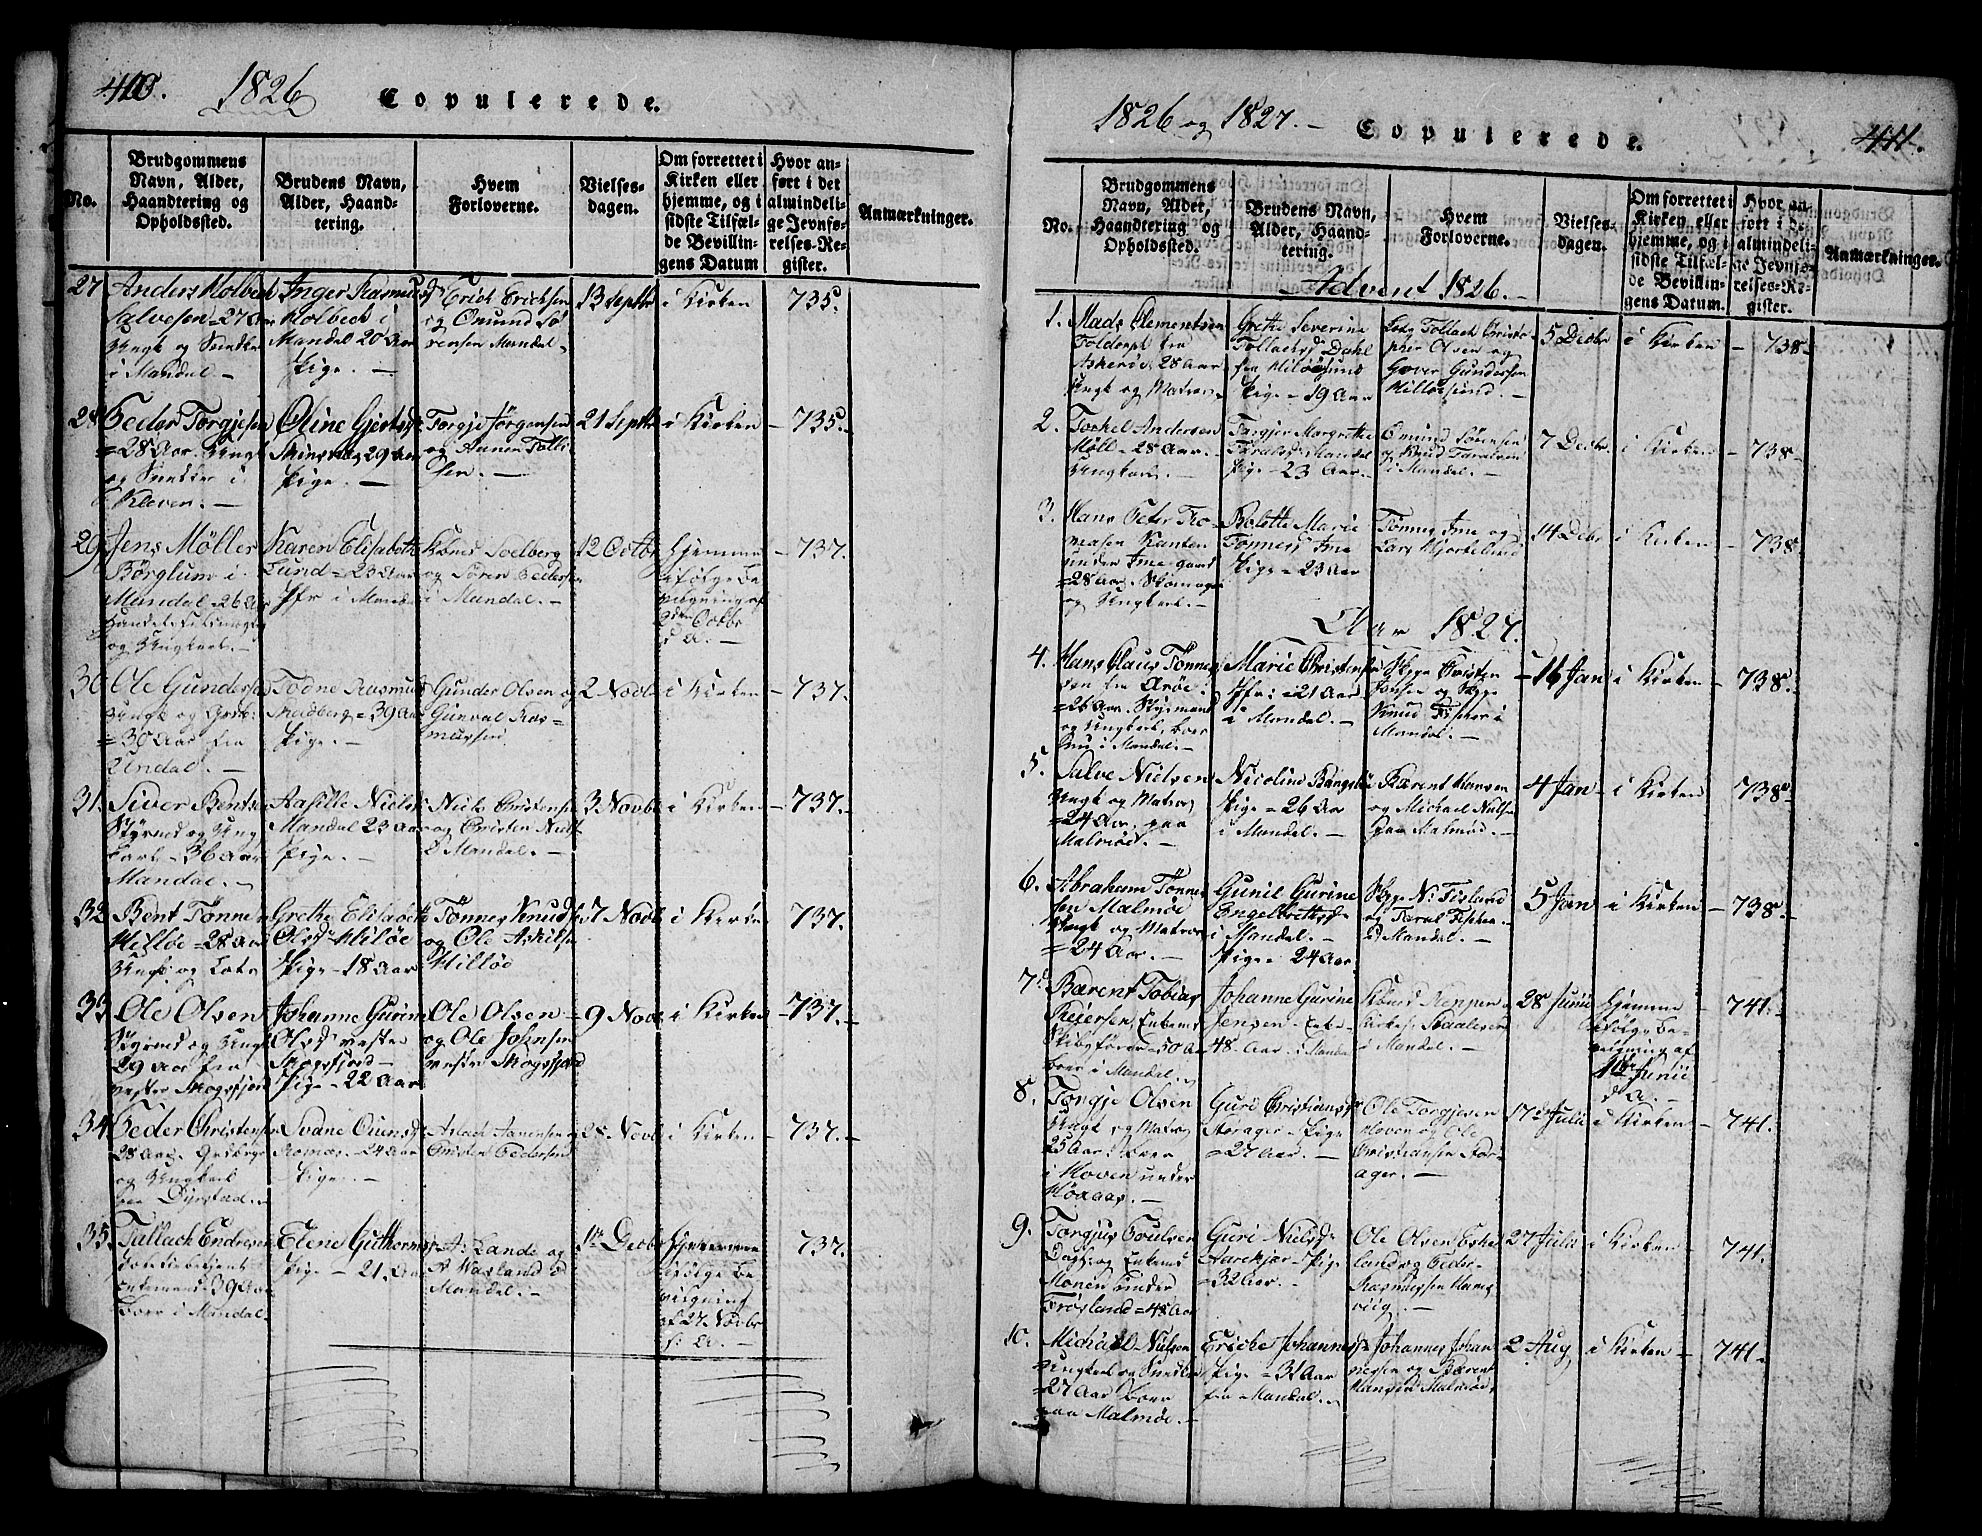 410. 1826 Copulerede.
No.
Brudgommens Navn, Alder, Haandtering og Opholdssted.
Brudens Navn, Alder, Haandtering.
Hvem Forloverne.
Vielsesdagen.
Om forrettet i Kirken eller hjemme, og i sidste Tilfælde Bevillingens Datum
Hvor anført i det almindelige Jevnførelses-Register.
Anmærkninger.
27 Anders Holbek Salvesen 27 Aar Ungk og Snedker i Mandal. –
Inger Rasmusd Holbeck i Mandal 20 Aar Pige. –
Erich Erichsen og Omund Sørensen Mandal –
13 Septbr
i Kirken
735.
28 Peder Torgjesen = 28 Aar. Ungk og Snedker i Kleven. –
Oline Gjertsd 29 Aar Pige. –
Torgje Jørgensen og Aanen Tallisen. –
21 Septbr
i Kirken
– 735. –
29. Jens Møller Børglum i Mandal 26 Aar og Ungkarl. –
Karen Elisabeth Lund = 23 Aar Jfr i Mandal
Solberg og Søren Pedersen i Mandal. –
12 Octbr
Hjemme ifølge Bevilgning af Octbr d. A. –
– 737.
30 Ole Gundersen Ungk og = 30 Aar fra Undal. –
Todne Rasmusd = 39 Aar Pige. –
Gunder Olsen og Gunval Rasmussen
2 Novbr
i Kirken
– 737.
31. Siver Bentsen Styrmd og Ungkarl – 36 Aar Mandal. –
Aasille Nielsd Mandal 23 Aar Pige. –
Niels Christensen og Christen Niels i Mandal. –
3 Novbr
i Kirken
– 737. –
32 Bent Tønnesen Hilløe = 28 Aar Ungk og Lots
Grethe Elisabeth Olsd Hilløe Pige – 18 Aar
Tønnes Knuds og Ole Askilsen Hilløe
7 Novbr
i Kirken
737.
33 Ole Olsen Styrmd og Ungk 29 Aar fra vester Skogsfjord
Johanne Gurine Olsd vester Skogsfjord – Pige – 22 Aar
Ole Olsen – og Ole Johnsen vester Skogsfjord
– 9 Novbr
i Kirken
– 737. –
34 Peder Christensen 28 Aar. og Ungkarl fra Dyrstad. –
Svane Omensd – 24 Aar Pige. –
Aslach Aanensen og Christen Pedersen
– 28 Novbr
i Kirken
– 737. –
35. Tallach Endresen Enkemand 39 Aar boer i Mandal.
Elene Guthorms Pige – 21. Aar
As: Lande og P Wasland i Mandal. –
1te Decbr
Hjemme ifølge Bevilgning af 27 Novbr s: A. –
737. –
1826 og 1827. – Copulerede. 411.
No.
Brudgommens Navn, Alder, Haandtering og Opholdssted.
Brudens Navn, Alder, Haandtering.
Hvem Forloverne.
Vielsesdagen.
Om forrettet i Kirken eller hjemme, og i sidste Tilfælde Bevillingens Datum.
Hvor anført i det almindelige Jevnførelses-Register.
Anmærkninger.
– Advent 1826. –
1. Mads Clementsen Toldorph fra Askerøe, 28 Aar Ungk og Matros
Grethe Severine Tollachsd Dahl fra Hiløesund Pige – 19 Aar
Lars Tollach Christopher Olsen og Gover Gundersen Hilløesund. –
5 Decbr
i Kirken
– 738 –
2. Torkel Andersen Møll – 28 Aar. Ungkarl. –
Torgjer Margrethe Taralsd Mandal Pige – 23 Aar.
Omund Sørensen og Knud Taraldsen i Mandal. –
7 Decbr
i Kirken
– 738 –
3. Hans Peter Thomasen Kanten under Ime gaard = 28 Aar. Skomager og Ungkarl. –
Bolette Marie Tønnesd Ime Pige – 23 Aar
Tønnes Ime og Lars Hjortelund
– 14 Decbr
i Kirken
– 738
Aar 1827.
4. Hans Claus Tønnesen fra Arøe. = 26 Aar. Styrmand og Ungkarl, boer nu i Mandal. –
Marie Christense Jfr: – 21 Aar i Mandal. –
Skipp Christen Jonsen og Skipp Knud Fisker i Mandal. –
– 16 Jan
i Kirken
– 738. –
5. Salve Nielsen Ungk og Matros = 24 Aar. paa Malmøe. –
Nicoline Pige = 26 Aar i Mandal. –
Bærent Hansen og Michael Niels paa Malmøe. –
4 Jan
– i Kirken
– 738. –
6. Abraham Tønnesen Malmøe Ungk og Matros = 24 Aar. –
Gunil Gurine Engelbrettsd i Mandal. – Pige – 24 Aar.
Skipp N: Tisland og Taral Fisker i Mandal. –
5 Jan
i Kirken
– 738. –
7. Bærent Tobias Reiersen, Enkemd Skibsfører – 50 Aar boer i Mandal. –
Johanne Gurine Jensen – Enke – 48 Aar. i Mandal
Skoelærer i Mandal. –
28 Junii
Hjemme ifølge Bevilgning af 1ste Junii d. A. –
– 741. –
8. Tongje Olsen Ungk og Matros 25 Aar. boer i Hoven under Høaas. –
Guri Christiansd Storager – Pige = 27 Aar. –
Ole Torgjesen Hoven og Ole Christiansen Storager. –
17de Julii
i Kirken
– 741.
9. Torgius Poulsen og Enkemd Monen under Frøsland = 48 Aar
Guri Nielsd Aarekjær – Pige – 32 Aar. –
Ole Olsen Eskeland og Peder Rasmussen Hareviig. –
27 Julii
i Kirken
– 741.
10. Michael Nielsen Ungkarl og Snedker = 27 Aar boer paa Malmøe. –
Ericke Johannesd Pige – 31 Aar fra Mandal. –
Johannes Johannessen og Bærent Hansen Malmøe,
2 Aug
i Kirken
– 741. –